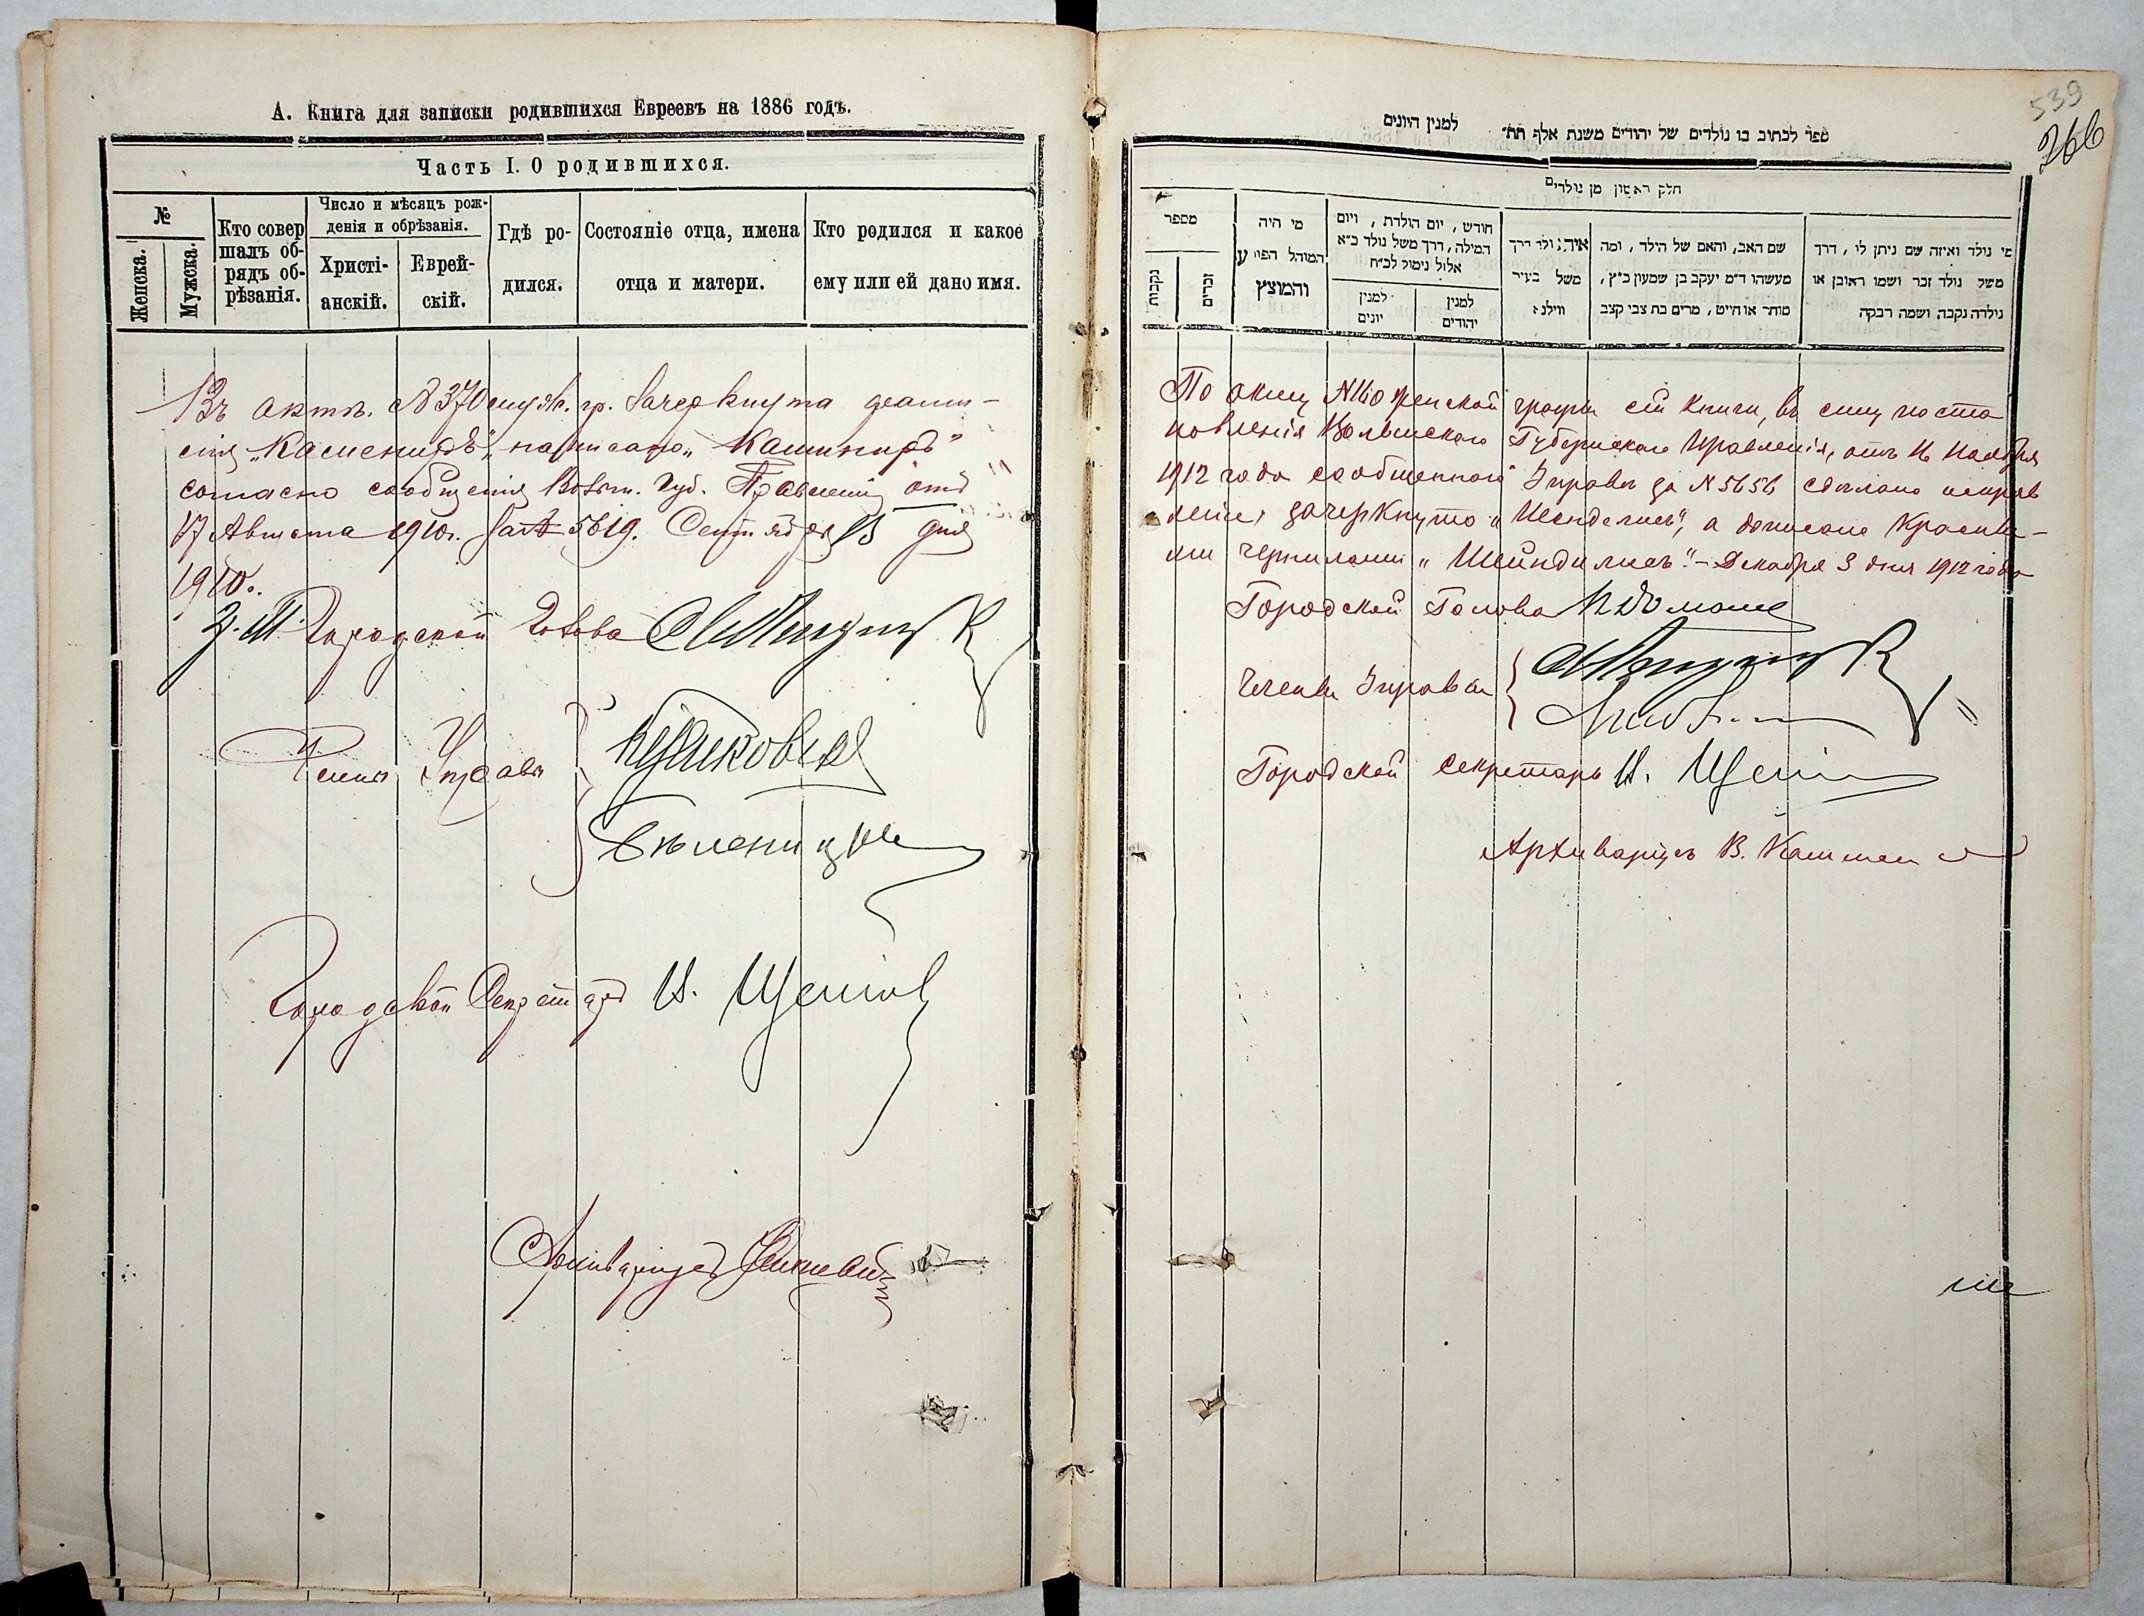 А. Книга для записки родившихся Евреевъ на 1886 годъ.
Часть I. О родившихся.
№
Женска.
Мужска.
Кто совер
шалъ об-
рядъ об-
рѣзанія.
Число и мѣсяцъ рож-
денія и обрѣзанія.
Христі-
анскій.
Еврей-
скій.
Гдѣ ро-
дился.
Состояніе отца, имена
отца и матери.
Кто родился и какое
ему или ей дано имя.
Въ актѣ № 370 муж. гр. Зачеркнута фами-
лія „Камениръ", написано „Камениръ"
согласно сообщенія Волын. Губ. Правленія отъ
17 Августа 1910 г. за № 5619. Сентября 15 дня
1910 г.
Городской Голова
Члены Управы
Городской Секретарь И.
Архиваріусъ
539
266
ספר לכתוב בו נולדים של יהודים משנת אלף תת" למנין היונים
חלק ראשון מן נולדים
מספר
נקבות
זכרים
מי היה
המוהל הפורע
והמוצץ
חודש, יום הולדת, ויום
המילה, דרך משל נולד כ"א
אלול נימול לכ"ח
למנין
יונים
למנין
יהודים
איה נולד דרך
משל בעיר
ווילנא
שם האב, והאם של הילד, ומה
מעשהו ד"מ יעקב בן שמעון כ"ץ,
סוחר או חייט, מרים בת צבי קצב
מי נולד ואיזה שם ניתן לו, דרך
משל נולד זכר ושמו ראובן או
נילדה נקבה ושמה רבקה
По акту № 160 женской графы сей книги, въ силу поста
новленія Волынскаго Губернскаго Правленія, отъ 16 Ноября
1912 года сообщеннаго Управѣ за № 5656 сдѣлано исправ
леніе, зачеркнуто „Шенделисъ", а дописано Красны-
ми чернилами „Шейндилисъ".- Декабря 3 дня 1912 года
Городской Голова
Члены Управы
Городской Секретарь И.
Архиваріусъ В.